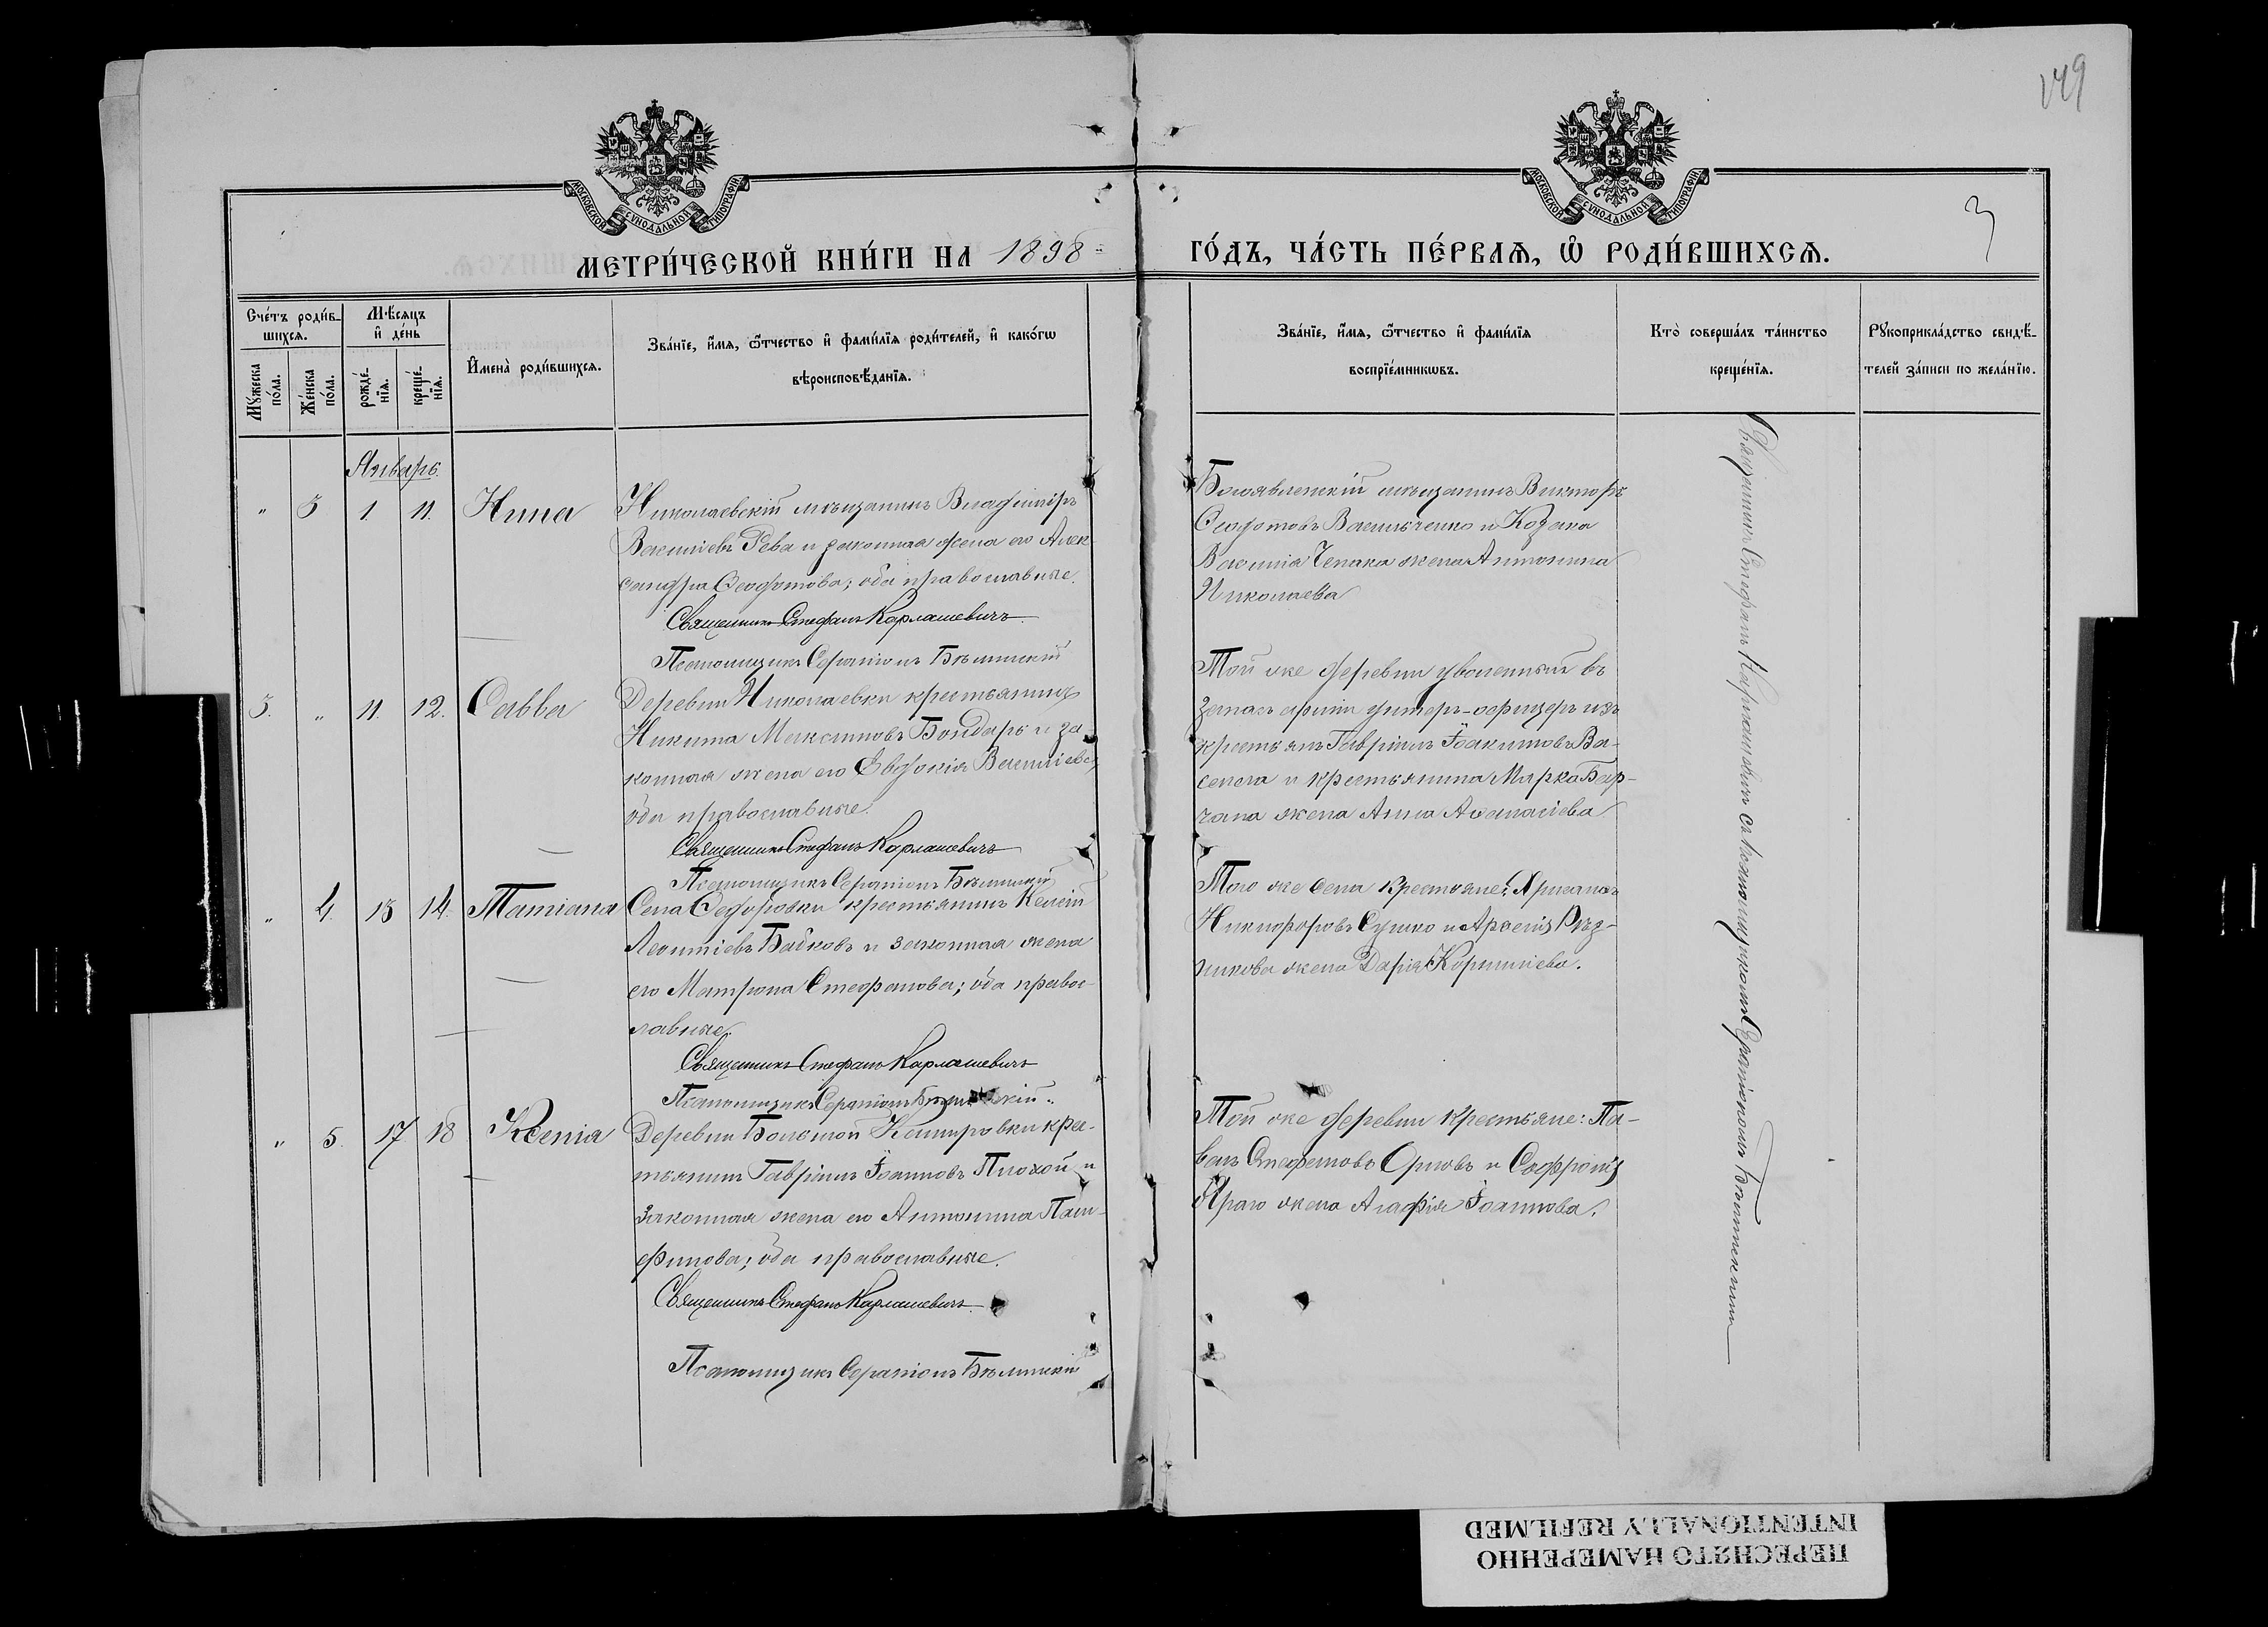 149
3
МОСКОВСКОЙ СѴНОДАЛЬНОЙ ТИПОГРАФІИ
МОСКОВСКОЙ СѴНОДАЛЬНОЙ ТИПОГРАФІИ
МЕТРИ́ЧЕСКОЙ КНИ́ГИ НА 1898
ГО́ДЪ, ЧА́СТЬ ПЕ́РВАѦ, Ѡ҆ РОДИ́ВШИХСѦ.
Сче́тъ роди́в-
шихсѧ.
Мѣ́сѧцъ
и҆ де́нь
Мꙋ́жеска
по́ла.
Же́нска
по́ла.
рожде́-
нїѧ.
креще́-
нїѧ.
И҆мена̀ роди́вшихсѧ.
Зва́нїе, и҆́мѧ, ѻ҆́тчество и҆ фами́лїѧ роди́телей, и҆ како́гѡ
вѣроисповѣ́данїѧ.
Зва́нїе, и҆́мѧ, ѻ҆́тчество и҆ фами́лїѧ
воспрїе́мникѡвъ.
Кто̀ соверша́лъ та́инство
креще́нїѧ.
Рꙋкоприкла́дство свидѣ́-
телей за́писи по жела́нїю.
Январь.
" 3 1. 11. Нина
Николаевскій мѣщанинъ Владиміръ
Василіевъ Рева и законная жена его Алек
сандра Ѳеодотова; оба православные.
Священникъ Стефанъ Карлашевичъ
Псаломщикъ Серапіонъ Бѣлинскій
Богоявленскій мѣщанинъ Викторъ
Ѳеодотовъ Васильченко и Козака
Василія Чепака жена Антонина
Николаева
3. " 11. 12. Савва
Деревни Николаевки крестьянинъ
Никита Максимовъ Бондарь и за
конная жена его Евдокія Василіева
оба православные.
Священникъ Стефанъ Карлашевичъ
Псаломщикъ Серапіонъ Бѣлинскій
Той же деревни уволенный въ
запасъ арміи унтеръ-офицеръ изъ
крестьянъ Гавріилъ Іоакимовъ Ва-
и крестьянина Марка
жена Анна Аѳанасіева
" 4. 13 14. Татіана
Села Ѳедоровки крестьянинъ
Леонтіевъ Бабковъ и законная жена
его Матрона Стефанова; оба правос-
лавные.
Священникъ Стефанъ Карлашевичъ
Псаломщикъ Серапіонъ Бѣлинскій
Того же села крестьяне:
Никифоровъ Сушко и Арсенія Рѣз-
никова жена Дарія Корниліева.
" 5. 17 18 Ксенія
Деревни Большой Кашировки кре-
тьянинъ Гавріилъ Іоанновъ Плохой и
законная жена его Антонина Пам-
филова; оба православные.
Священникъ Стефанъ Карлашевичъ
Псаломщикъ Серапіонъ Бѣлинскій
Той же деревни крестьяне: Па-
велъ Стефановъ Орловъ и Софронія
жена Агафія Іоаннова.
Священникъ Стефанъ Карлашевичъ съ псаломщикомъ Серапіономъ Бѣлинскимъ
ПЕРЕСНЯТО НАМЕРЕННО
INTENTIONALLY REFILMED